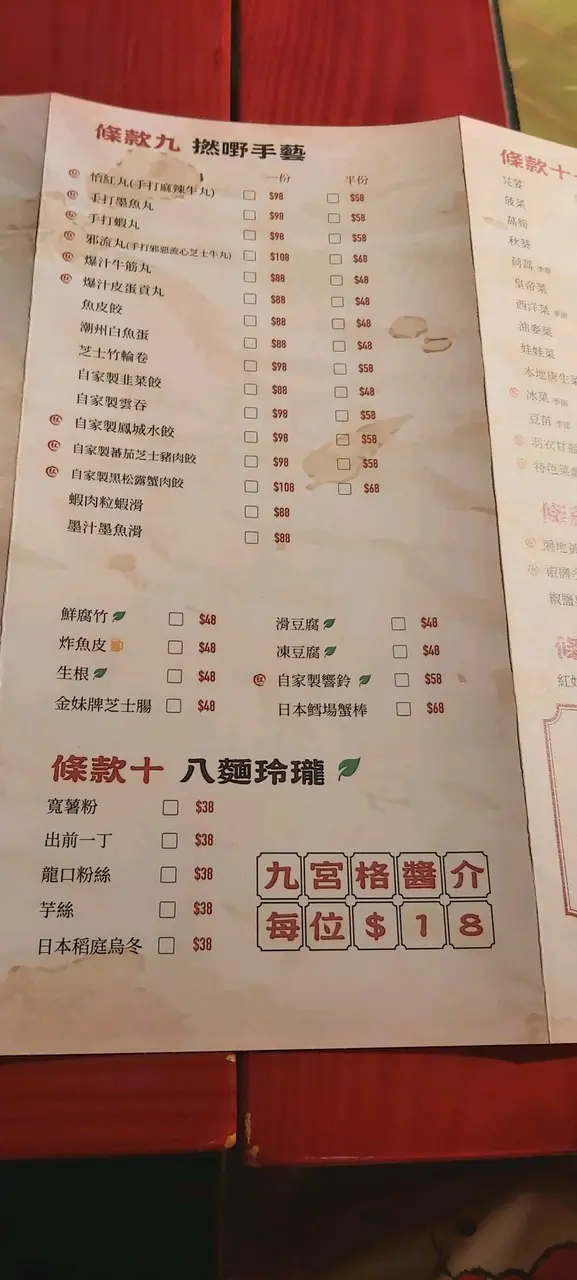 條款九 撚嘢手藝
一份 半份
怡紅丸(手打麻辣牛丸) $98 $58
手打墨魚丸 $98 $58
手打蝦丸 $98 $58
邪流丸(手打邪惡流心芝士牛丸) $108 $68
爆汁牛筋丸 $88 $48
爆汁皮蛋貢丸 $88 $48
魚皮餃 $88 $48
潮州白魚蛋 $88 $48
芝士竹輪卷 $98 $58
自家製韭菜餃 $88 $48
自家製雲吞 $98 $58
自家製鳳城水餃 $98 $58
自家製番茄芝士豬肉餃 $98 $58
自家製黑松露蟹肉餃 $108 $68
蝦肉粒蝦滑 $88
墨汁墨魚滑 $88
鮮腐竹 $48
炸魚皮 $48
生根 $48
金妹牌芝士腸 $48
滑豆腐 $48
凍豆腐 $48
自家製響鈴 $58
日本鱈場蟹棒 $68
條款十 八麵玲瓏
寬薯粉 $38
出前一丁 $38
龍口粉絲 $38
芋絲 $38
日本稻庭烏冬 $38
九宮格醬介
每位$18
條款十
芫荽
豉菜
萵筍
秋葵
茼蒿 季節
皇帝菜
西洋菜 季節
油麥菜
娃娃菜
本地唐生菜
冰菜 季節
豆苗 季節
羽衣甘
特色菜
條
椒鹽
椒鹽
條